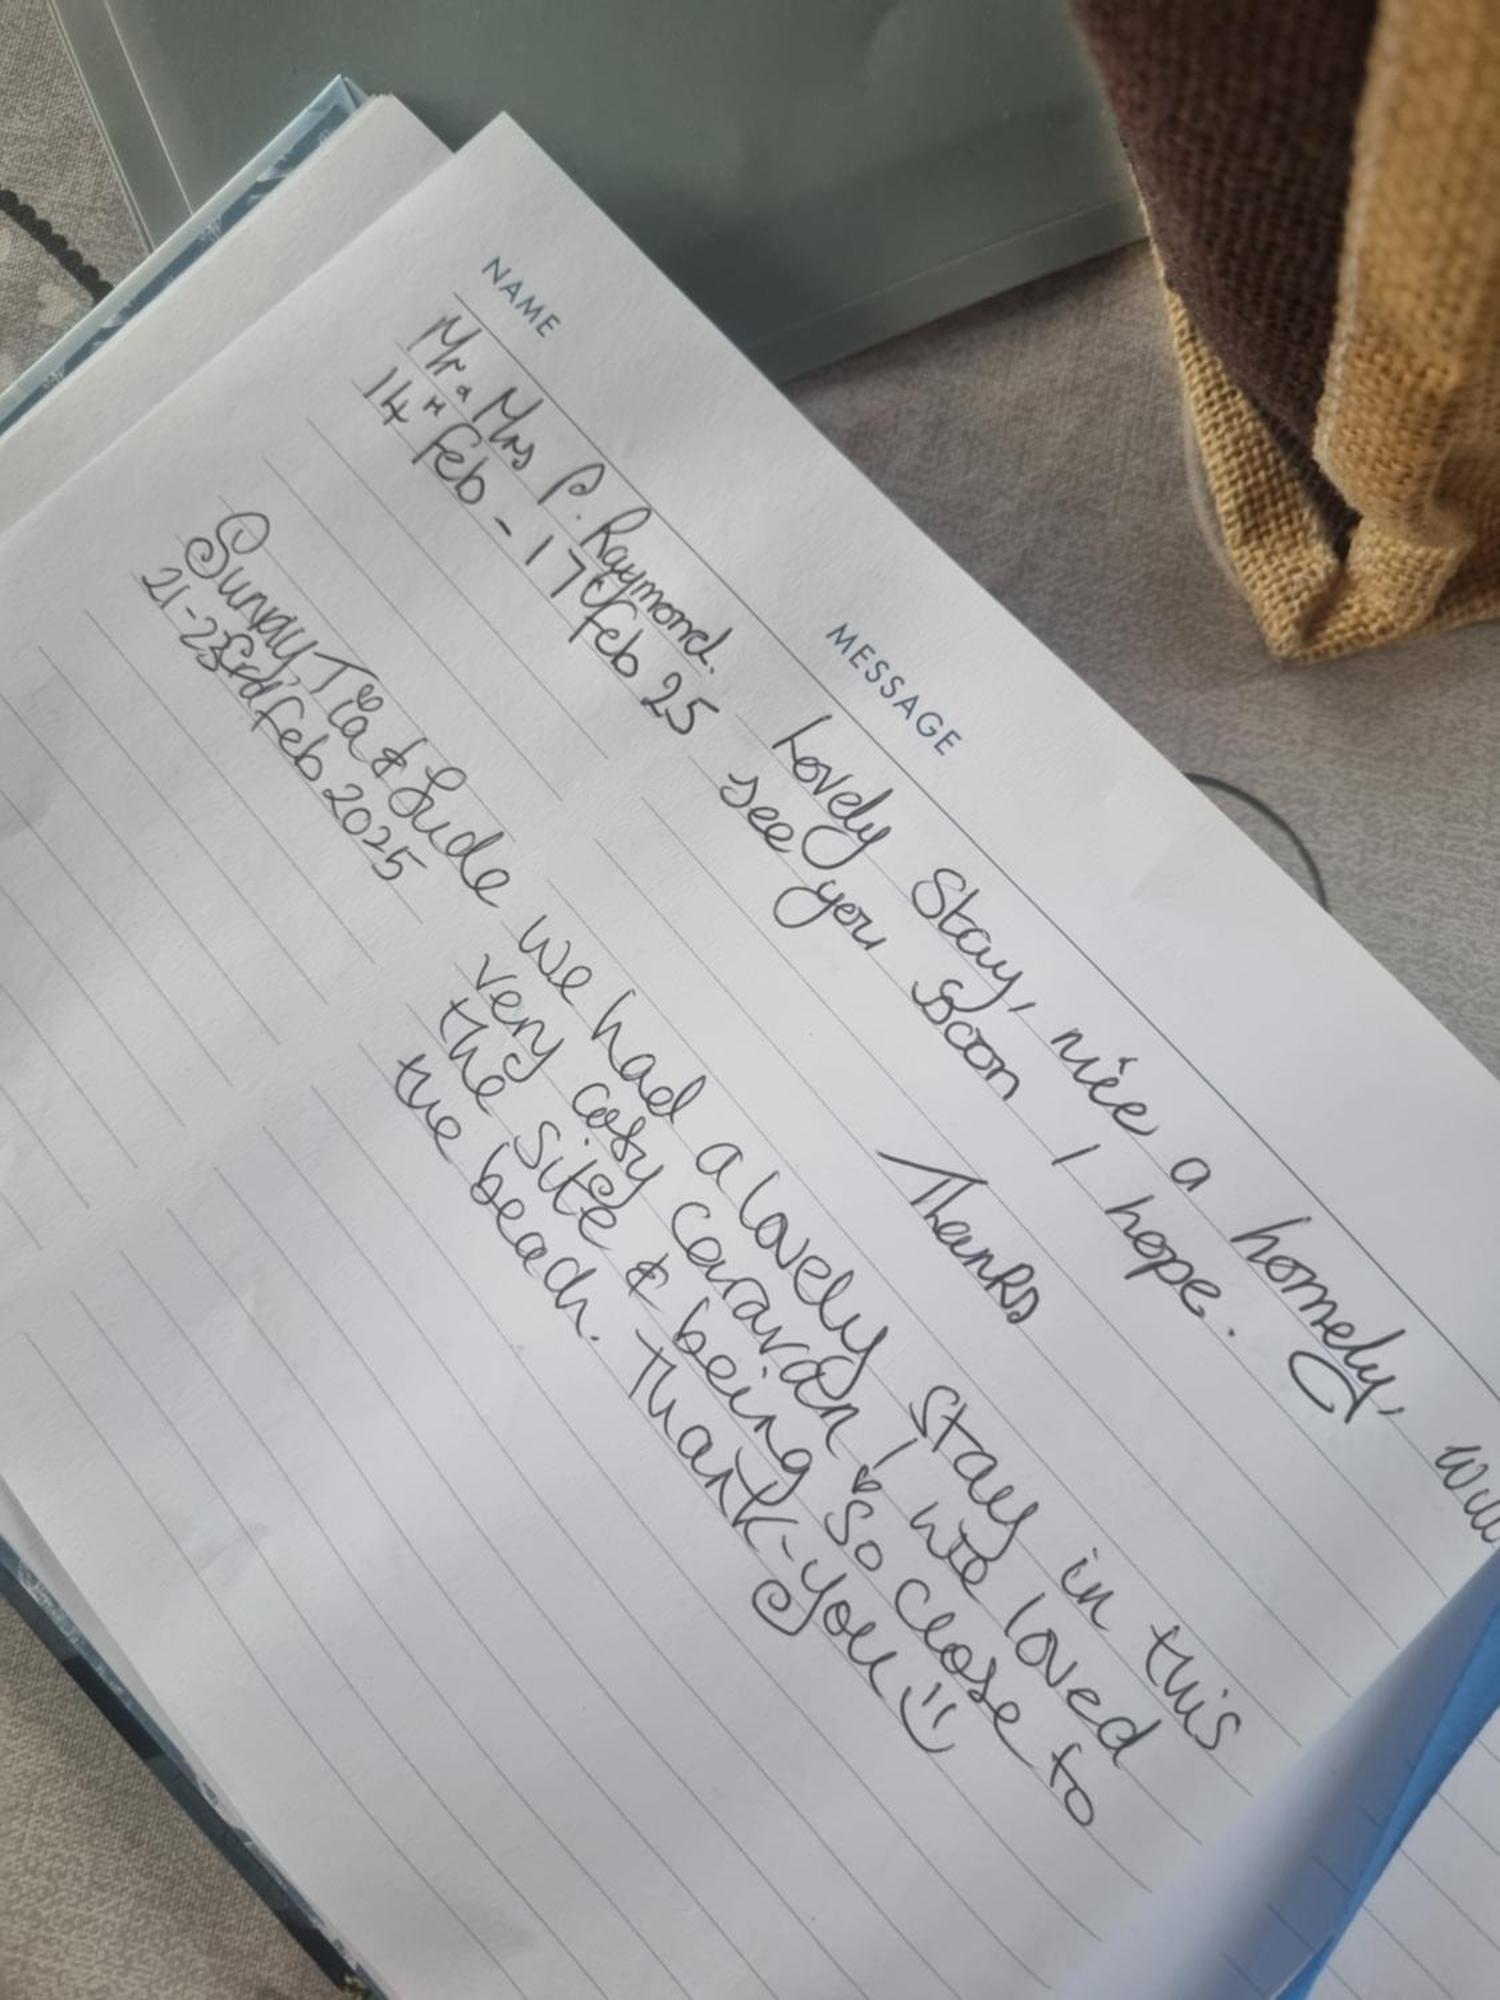 NAME MESSAGE
Mr & Mrs P. Raymond. Lovely Stay, nice a homely, Will
14th Feb - 17th Feb 25 see you soon I hope.
Thanks
Sunny, Tia & Jude We had a lovely stay in this
21-23rd Feb 2025 very cosy caravan! We loved
the site & being so close to
the beach. Thank-you